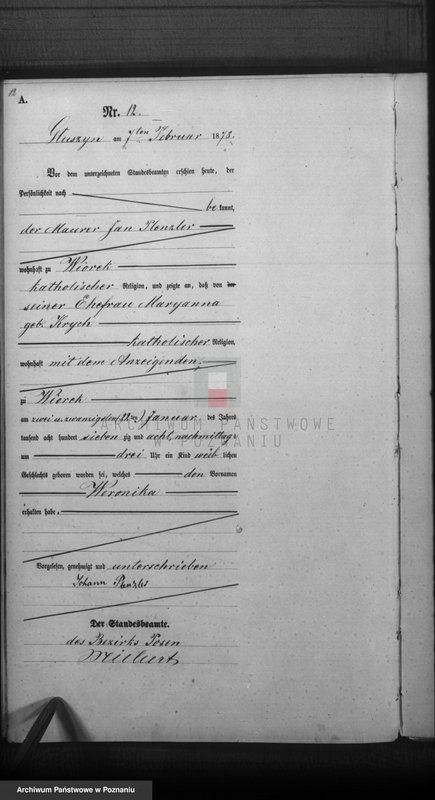 12
A.
Nr. 12.
Gluszyn am 7ten Februar 1878.
Vor dem unterzeichneten Standesbeamten erschien heute, der
Persönlichkeit nach
bekannt,
der Maurer Jan
wohnhaft zu Wiorek
katholischer Religion, und zeigte an, daß von der
seiner Ehefrau Maryanna
geb. Krych
katholischer Religion,
wohnhaft mit dem Anzeigenden,
zu Wiorek
am zwei u. zwanzigsten (22ten) Januar des Jahres
tausend acht hundert siebenzig und acht, nachmittags
um drei Uhr ein Kind weiblichen
Geschlechts geboren worden sei, welches den Vornamen
Weronika
erhalten habe.
Vorgelesen, genehmigt und unterschrieben
Johann
Der Standesbeamte.
des Bezirks Posen
ARCHIWUM PAŃSTWOWE
W POZNANIU
Archiwum Państwowe w Poznaniu